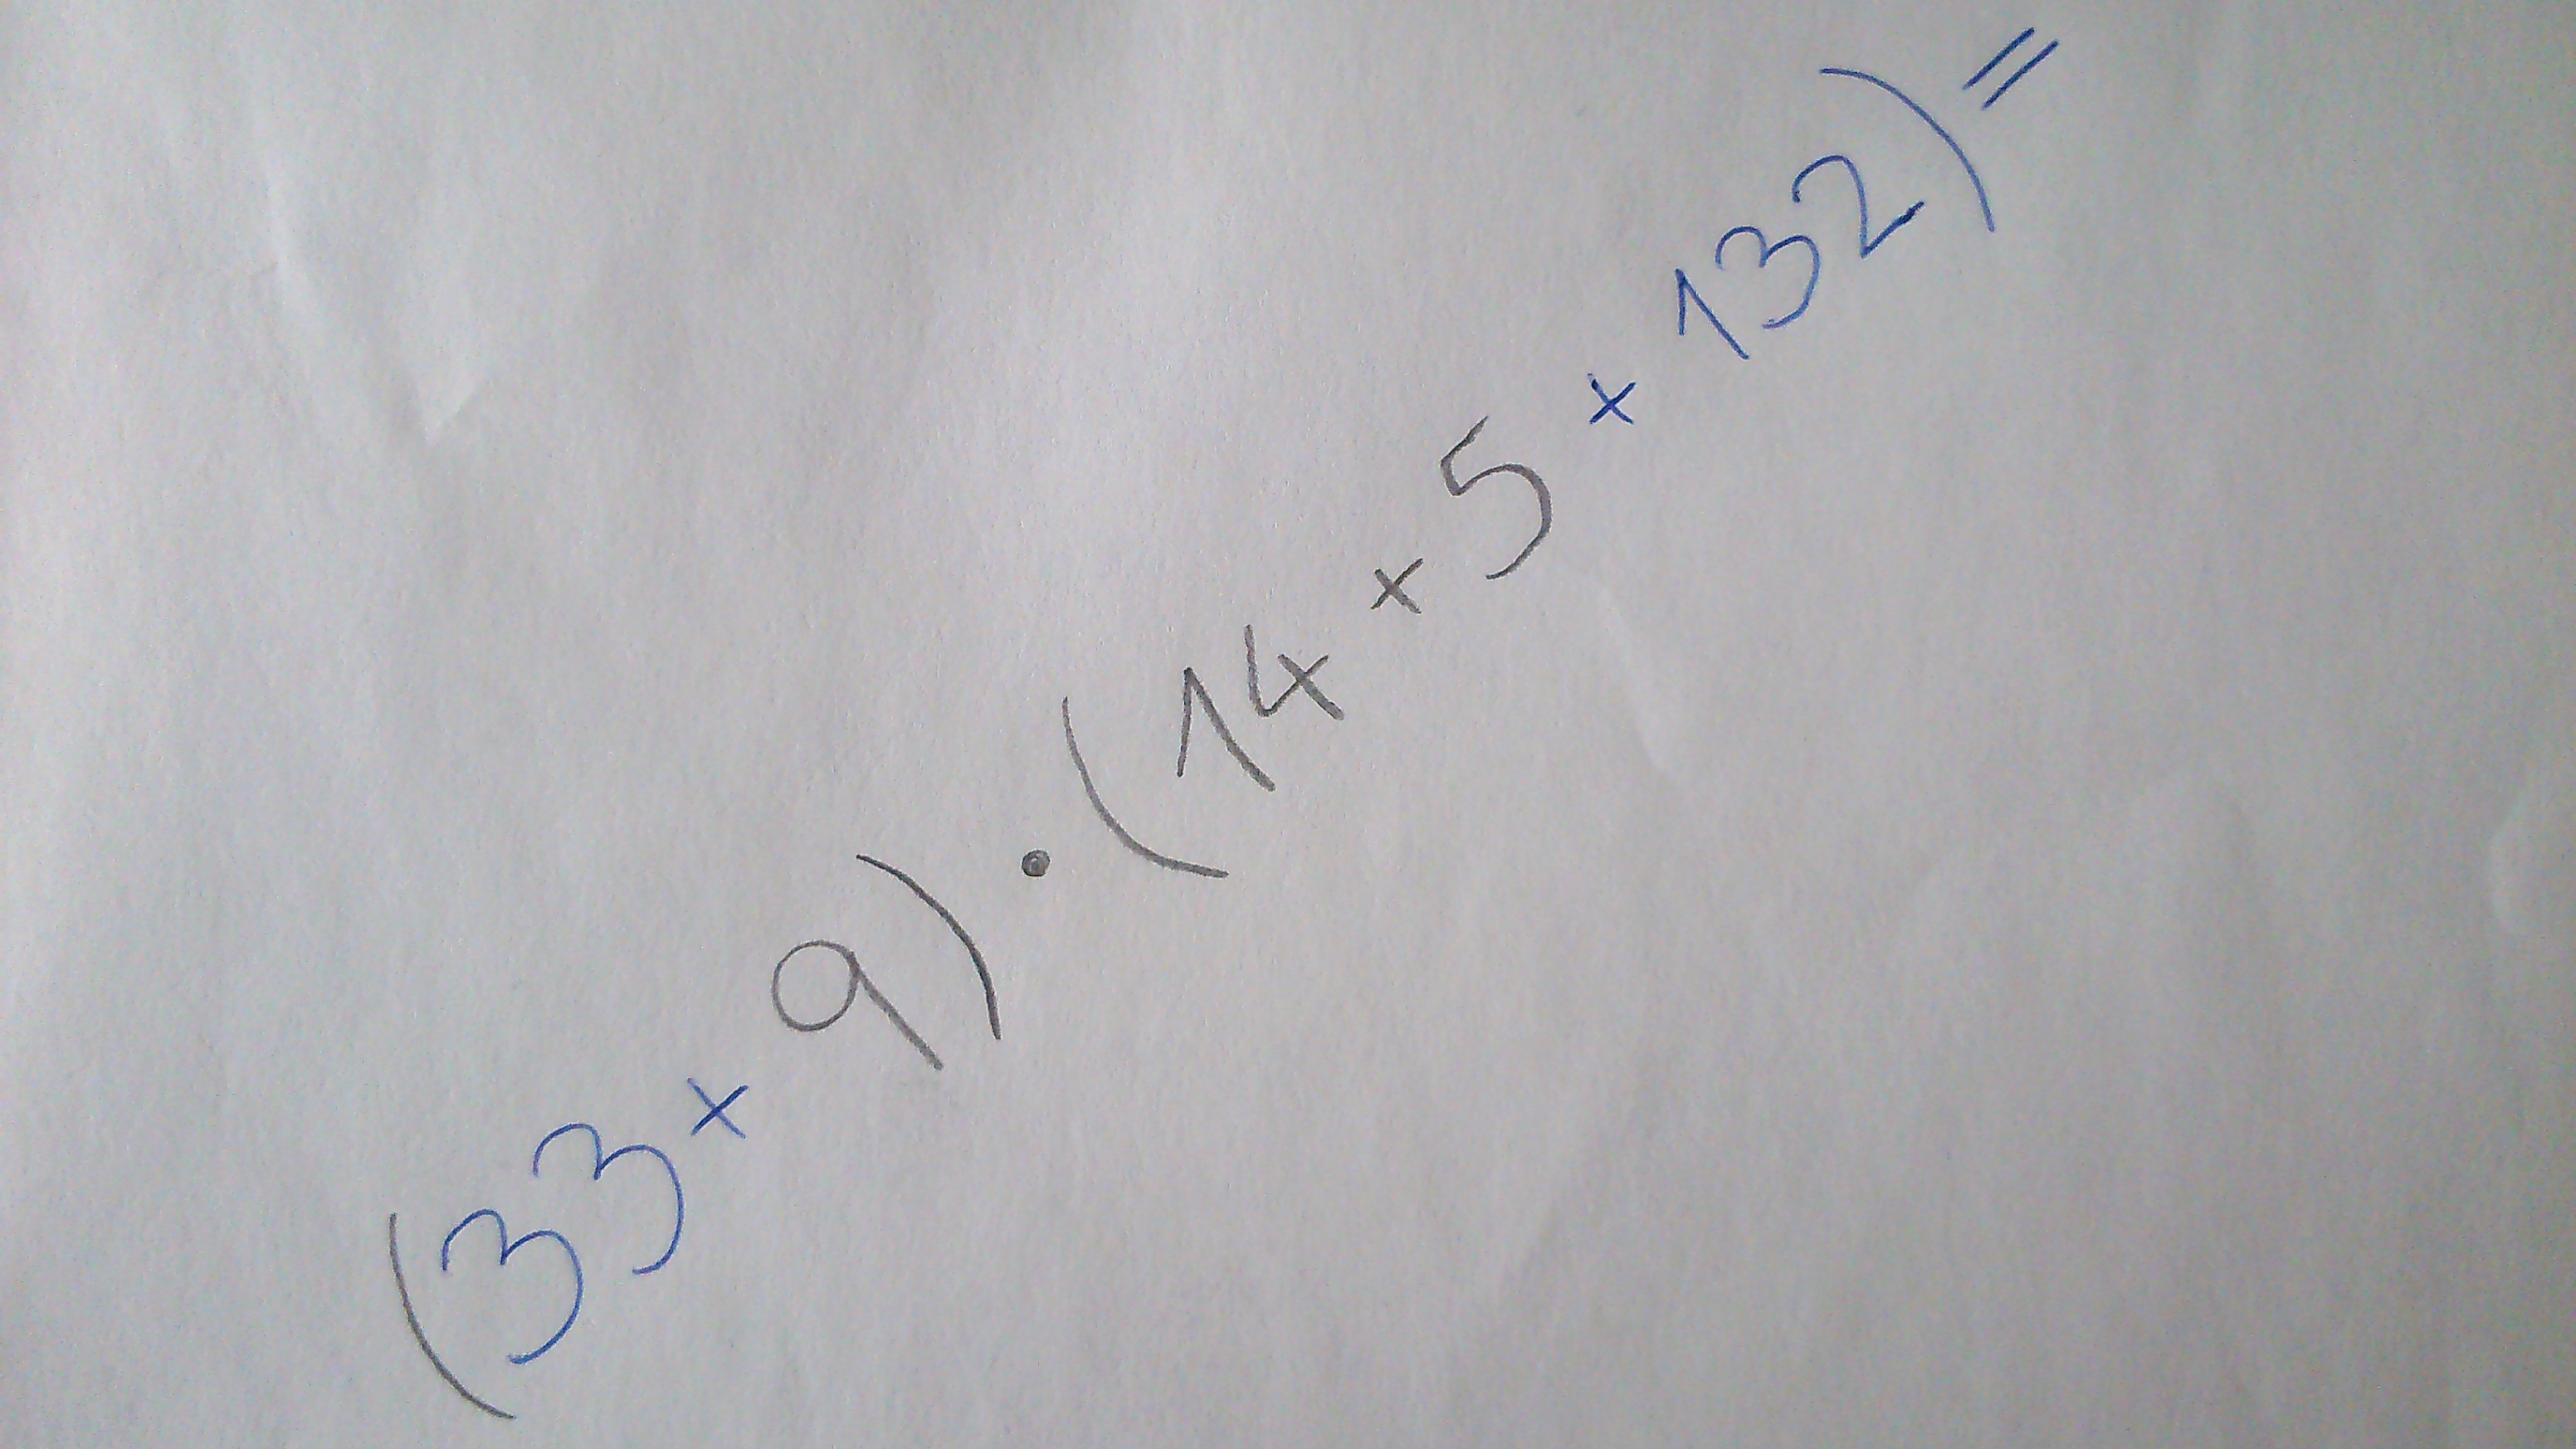 (33 × 9) · (14 × 5 × 132) =